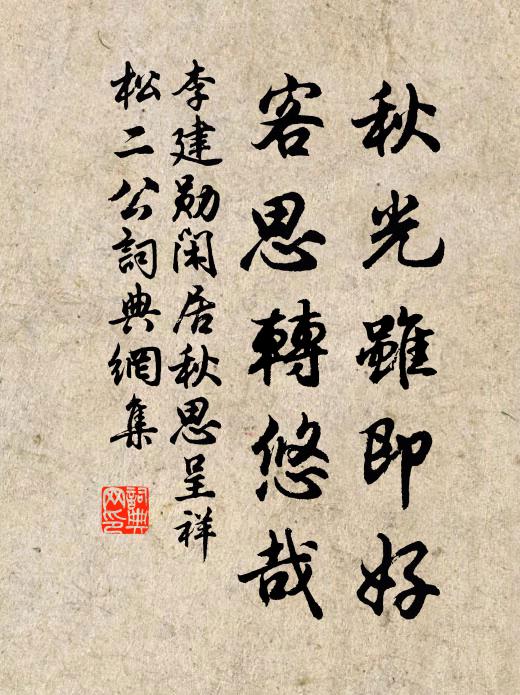 秋光雖即好
客思轉悠哉
李建勛閑居秋思呈祥
松二公詞典網集
詞典
网印